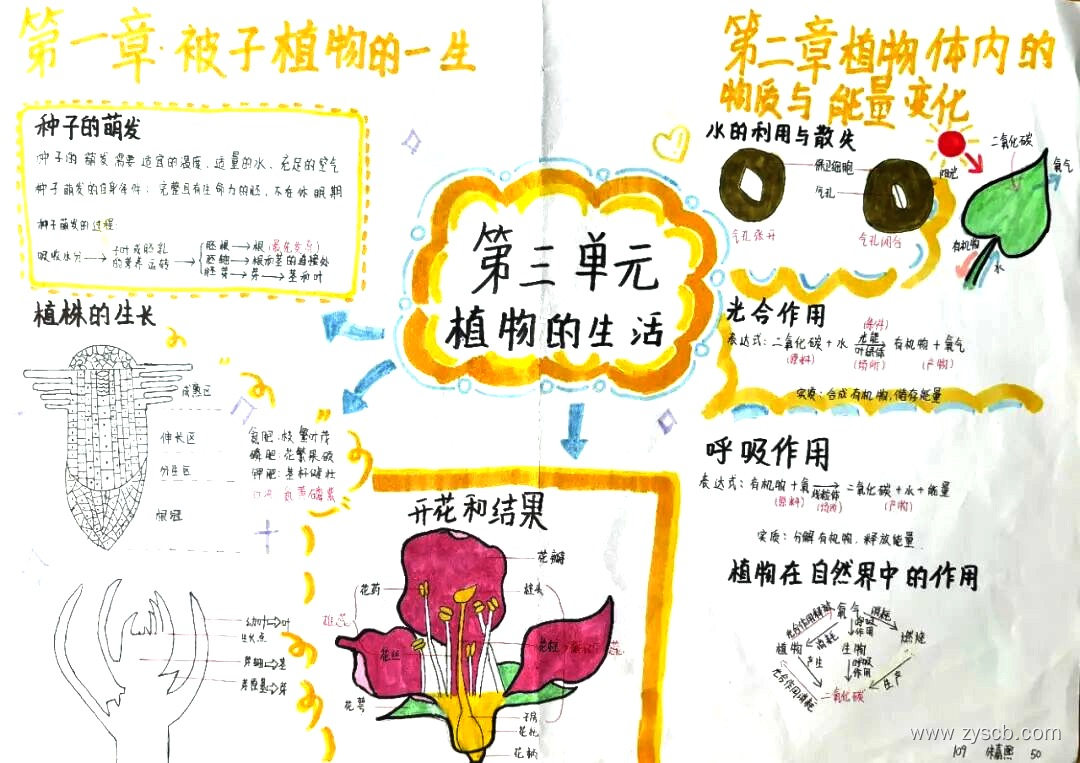 第一章·被子植物的一生
种子的萌发
种子的萌发需要适宜的温度、适量的水、充足的空气
种子萌发的自身条件：完整且有生命力的胚，不在休眠期
种子萌发的过程：
吸收水分→子叶或胚乳的营养运转→
胚根→根(最先发育)
胚轴→根和茎的连接处
胚芽→芽→茎和叶
植株的生长
成熟区
伸长区
分生区
根冠
氮肥：枝繁叶茂
磷肥：花繁果硕
钾肥：茎秆健壮
幼叶→叶
生长点
芽轴→茎
芽原基→芽
第三单元
植物的生活
开花和结果
花瓣
花药
柱头
雄蕊
花丝
花柱
花萼
子房
花托
花柄
第二章植物体内的
物质与能量变化
水的利用与散失
保卫细胞
气孔
气孔张开
气孔闭合
阳光
二氧化碳
氧气
有机物
水
光合作用
(条件)
表达式：二氧化碳+水 光能 叶绿体 有机物+氧气
(原料) (场所) (产物)
实质：合成有机物，储存能量
呼吸作用
表达式：有机物+氧 线粒体 二氧化碳+水+能量
(原料) (场所) (产物)
实质：分解有机物，释放能量
植物在自然界中的作用
光合作用释放
氧气
消耗
呼吸作用
燃烧
植物
消耗
生物
产生
呼吸作用
生产
光合作用消耗
二氧化碳
www.zyscb.com
109
50